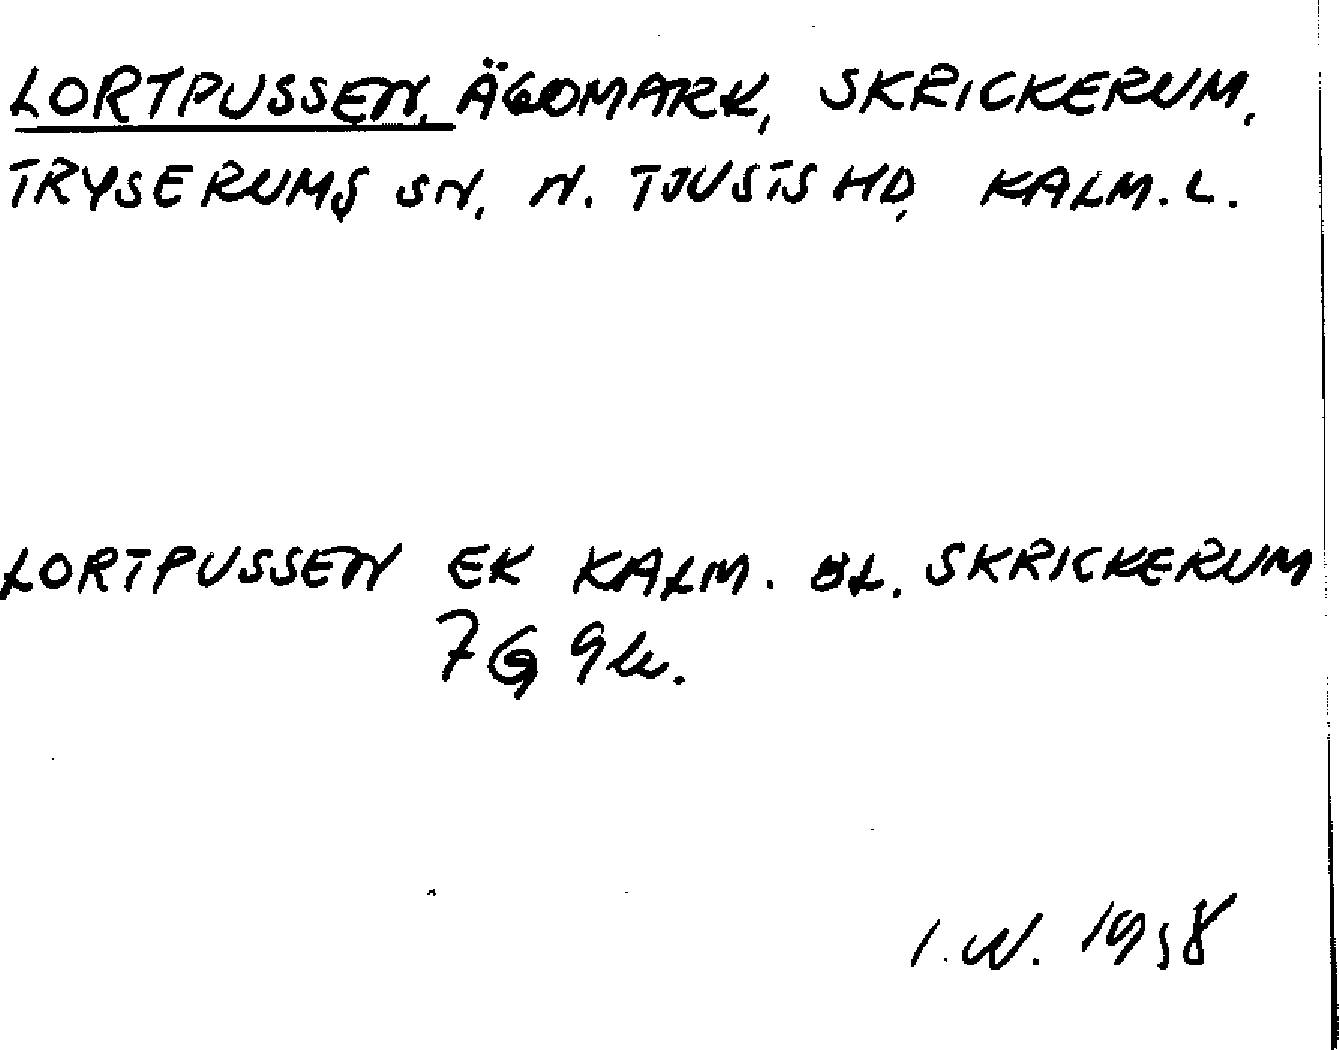 LORTPUSSEN, ÄGOMARK, SKRICKERUM,
TRYSERUMS SN, N. TJUSTS HD, KALM. L.
LORTPUSSEN EK KALM. BL. SKRICKERUM
7G 9b.
I.W. 1958